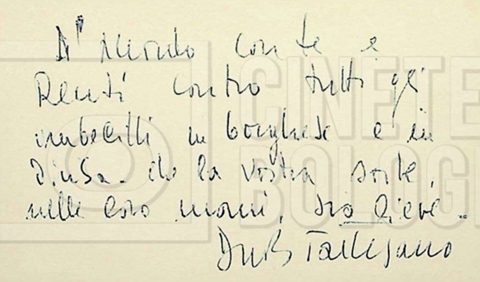 D'accordo con te e
Renzi contro tutti gli
imbecilli in borghese e in
divisa. che la vostra sorte,
nelle loro mani, sia lieve.
CINETE
BOLOG